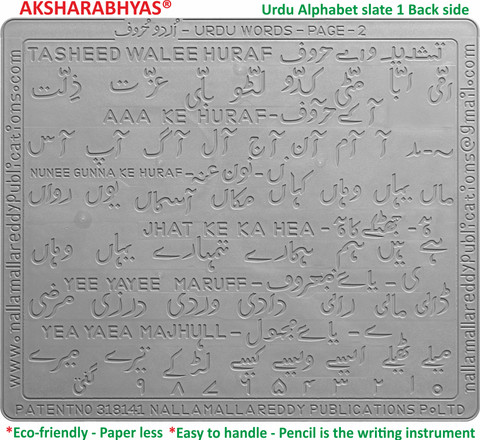 AKSHARABHYAS® Urdu Alphabet slate 1 Back side
اُردو حُروف - URDU WORDS - PAGE - 2
TASHEED WALEE HURAF - تشدید والے حروف
امّی ابّا مٹّی کدّو لٹّو بلّی عزّت ذلّت
AAA KE HURAF - آ کے حروف
~ مد آ آم آن آج آل آگ آپ آس
NUNEE GUNNA KE HURAF - ں - نون غنہ
ماں یہاں وہاں کہاں مکاں آسماں یوں رواں
JHAT KE KA HEA - ہ - جھٹکے کا ہ
ہے ہیں ہم ہمارے تمہارے یہاں وہاں
YEE YAYEE MARUFF - ی - یائے معروف
رانی دادی وردی درزی مرضی
YEA YAEA MAJHULL - ے - یائے مجہول
میلے ٹھیلے ایسے ویسے کیسے لڑکے تیرے میرے
۰ ۱ ۲ ۳ ۴ ۵ ۶ ۷ ۸ ۹ گنتی
PATENTNO 318141 NALLAMALLAREDDY PUBLICATIONS PoLTD
www.nallamallareddyPublications.com
nallamallareddypublications@gmail.com
*Eco-friendly - Paper less *Easy to handle - Pencil is the writing instrument